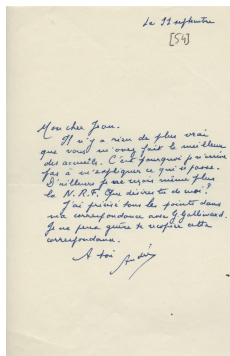 Le 11 septembre
[54]
Mon cher Jean.
Il n'y a rien de plus vrai
que vous m'avez fait le meilleur
des accueils. C'est pourquoi je n'arrive
pas à m'expliquer ce qui se passe.
D'ailleurs je ne reçois même plus
la N.R.F. Que désires-tu de moi?
J'ai précisé tous les points dans
ma correspondance avec G. Gallimard.
Je ne peux guère te recopier cette
correspondance.
A toi
André